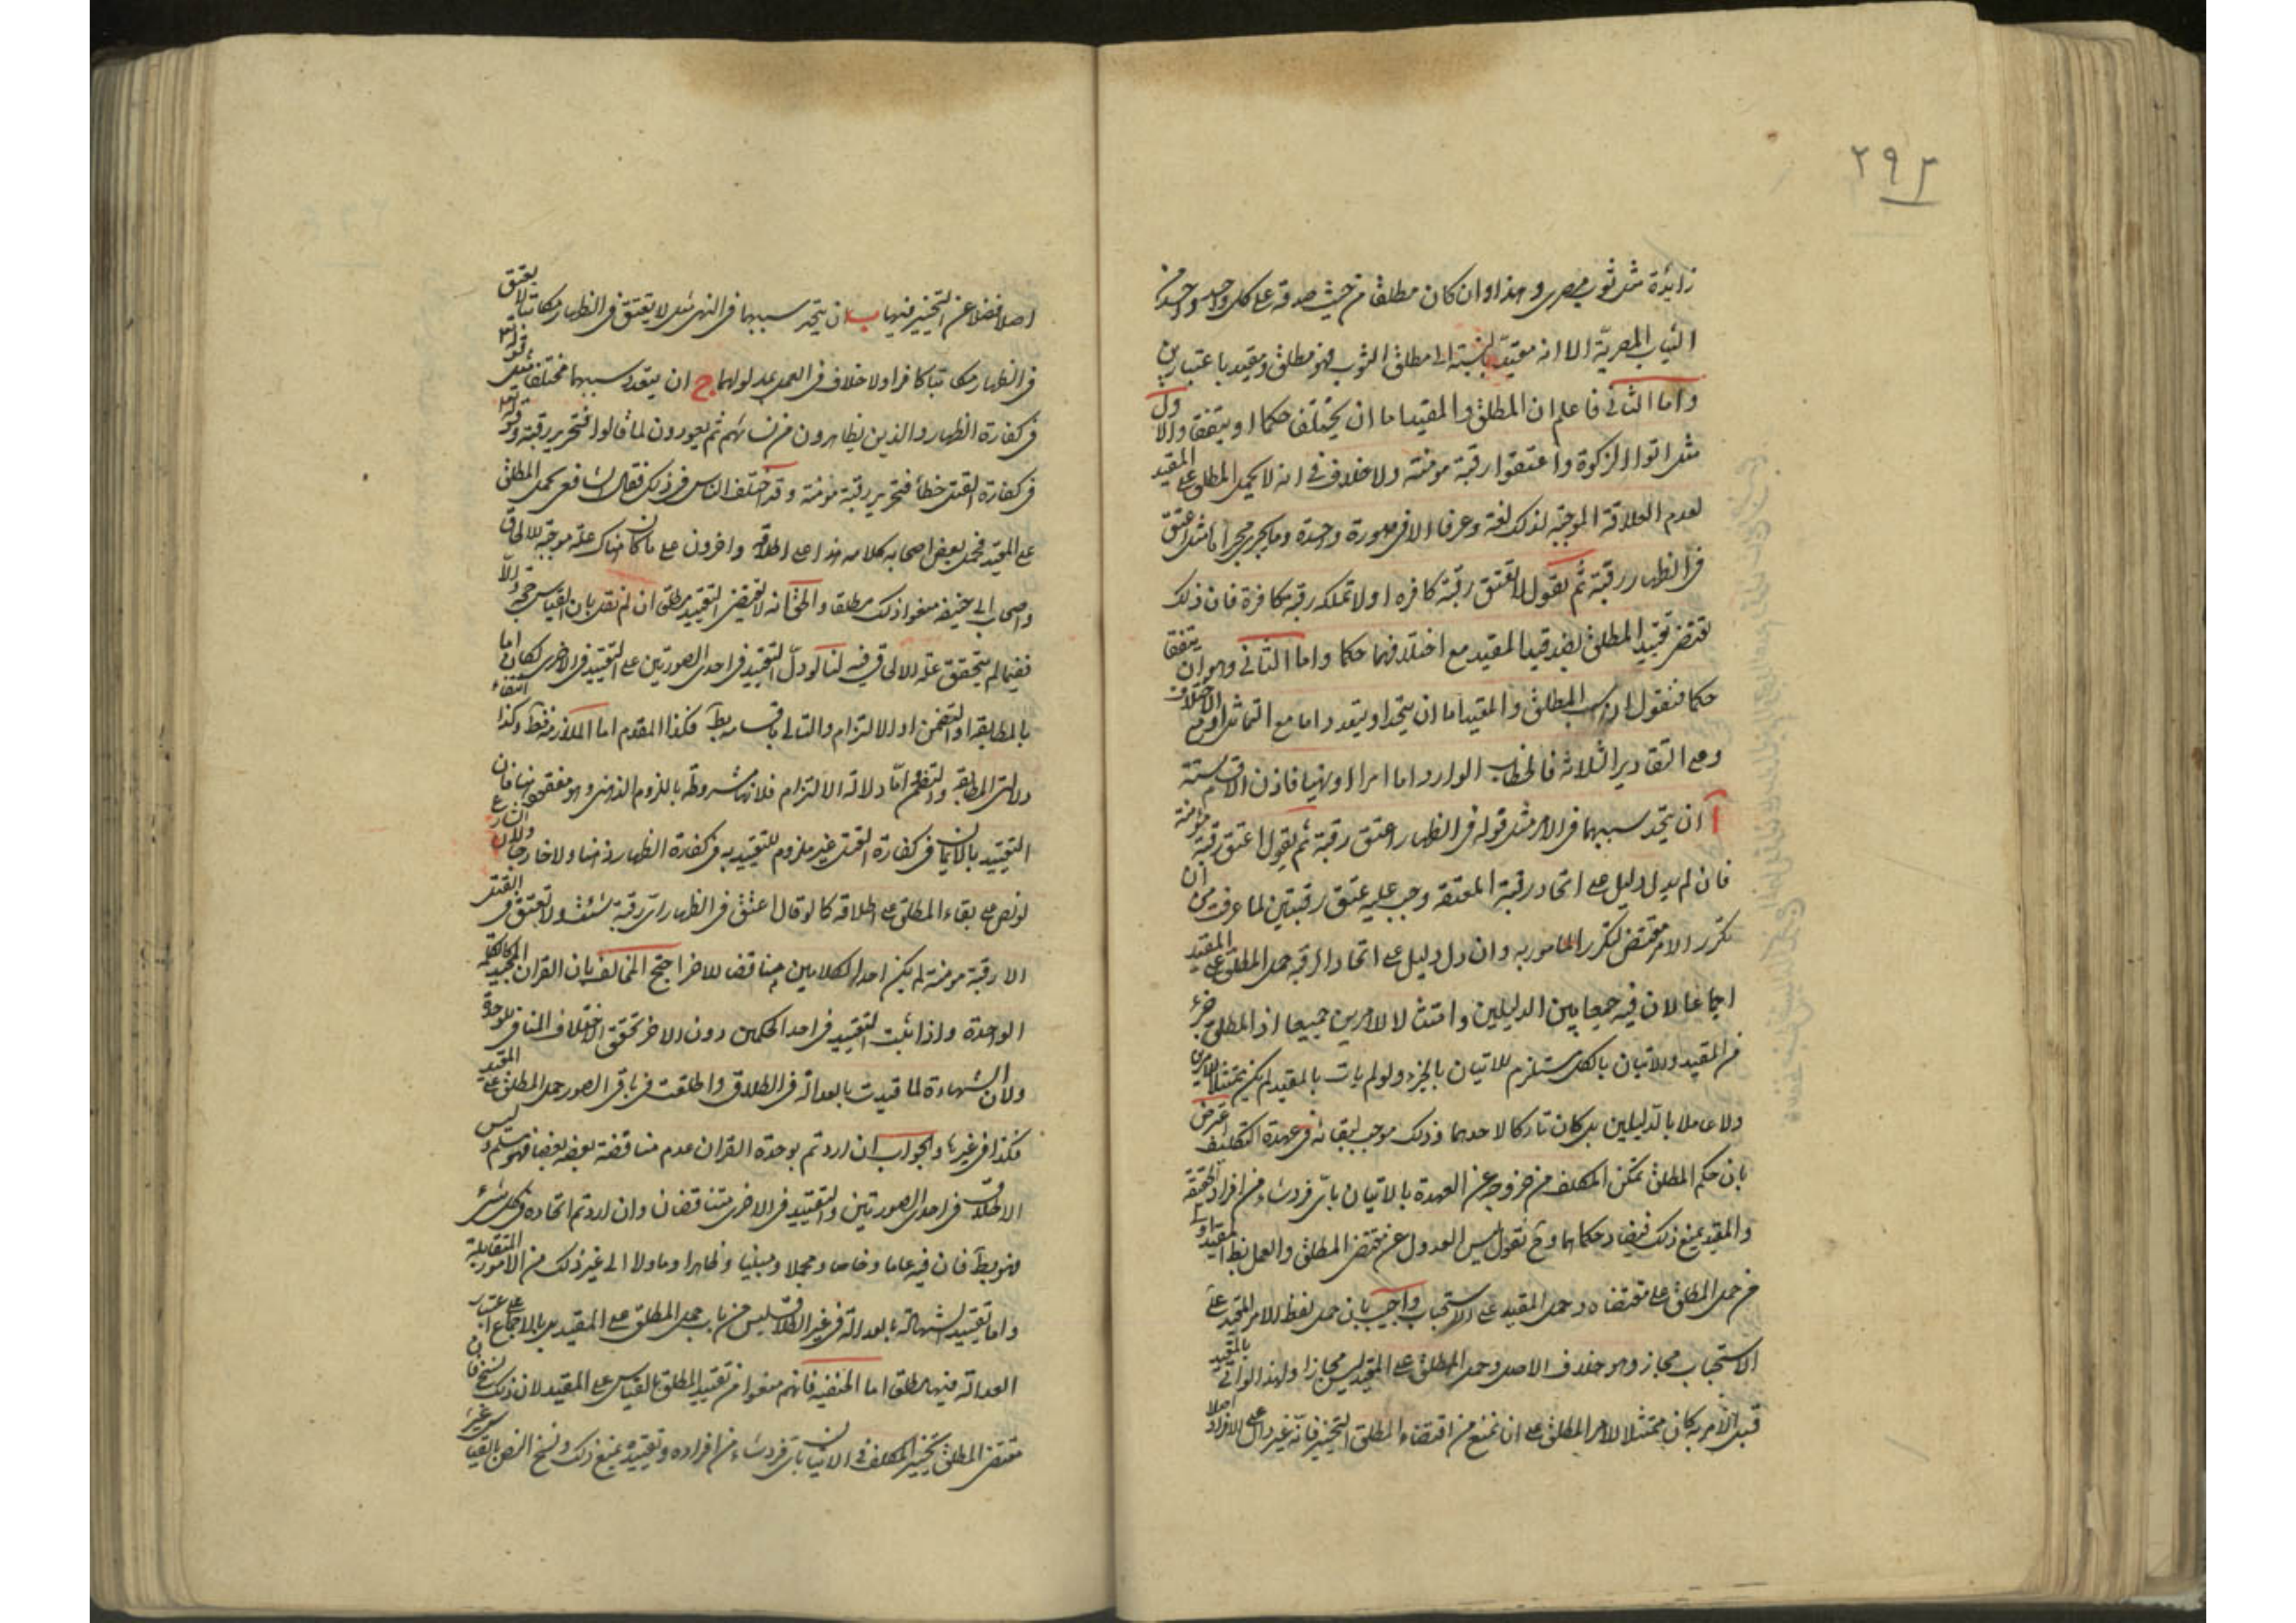 ٢٩٢
زائدة مثل ثوب مصرى وهذا وان كان مطلقا من حيث صدقه على كل واحد واحد من
الثياب المصرية الا انه مقيد بالنسبة الى مطلق الثوب فهو مطلق ومقيد باعتبارين
واما الثانى فاعلم ان المطلق والمقيد اما ان يختلفا حكما او يتفقا والاول
مثل اتوا الزكوة واعتقوا رقبة مومنة ولا خلاف فى انه لا يحمل المطلق على المقيد
لعدم العلاقة الموجبة لذلك لغة وعرفا الا فى صورة واحدة وما يجرى مجراها مثل اعتق
فى الظهار رقبة ثم يقول لا تعتق رقبة كافره او لا تملك رقبة كافرة فان ذلك
يقتضى تقييد المطلق بضد قيد المقيد مع اختلافهما حكما واما الثانى وهو ان يتفقا
حكما فنقول ان سبب المطلق والمقيد اما ان يتحد او يتعدد اما مع التماثل او مع الاختلاف
وعلى التقادير الثلاثة فالخطاب الوارد اما امرا او نهيا فاذن الاقسام ستة
آ ان يتحد سببهما فى الامر مثل قوله فى الظهار اعتق رقبة ثم يقول اعتق رقبة مومنة
فان لم يدل دليل على اتحاد رقبة المعتقه وجب عليه عتق رقبتين لما عرفت من ان
تكرر الامر مقتضى لتكرر المامور به وان دل دليل على اتحاد الرقبة حمل المطلق على المقيد
اجماعا لان فيه جمعا بين الدليلين وامتثالا للامرين جميعا اذ المطلق جزء
من المقيد والاتيان بالكل يستلزم للاتيان بالجزء ولو لم يات بالمقيد لم يكن ممتثلا للامرين
ولا عاملا بالدليلين بل كان تاركا لاحدهما وذلك موجب لبقائه فى عهدة التكليف اعترض
بان حكم المطلق تمكن المكلف من خروجه عن العهدة بالاتيان باى فرد شاء من افراد الحقيقة
والمقيد يمنع ذلك فيضاد حكماهما وح نقول ليس العدول عن مقتضى المطلق والعمل بظاهر المقيد اولى
من حمل المطلق على مقتضاه وحمل المقيد على الاستحباب واجيب بان حمل لفظ الامر للمقيد على
الاستحباب مجاز وهو خلاف الاصل وحمل المطلق على المقيد ليس مجازا ولهذا لو اتى بالمقيد
قبل الامر به كان ممتثلا لامر المطلق على ان نمنع من اقتضاء المطلق التخيير فانه غير دال على الافراد اصلا
اصلا فضلا عن التخيير فيها ب ان يتحد سببهما فى النهى مثل لا يعتق فى الظهار مكاتبا لا يعتق
فى الظهار مكاتبا كافرا ولا خلاف فى العمل بمدلولهما ج ان يتعدد سببهما مختلفا مثل قوله تع
فى كفارة الظهار والذين يظاهرون من نسائهم ثم يعودون لما قالوا فتحرير رقبة وقوله تع
فى كفارة القتل خطأ فتحرير رقبة مومنة وقد اختلف الناس فى ذلك فقال الشافعى يحمل المطلق
على المقيد فحمل بعض اصحابه كلامه هذا على اطلاقه واخرون على ما كان هناك علة موجبة للالحاق
واصحاب ابى حنيفه منعوا ذلك مطلقا والحق انه لا يقتضى التقييد مطلق ان لم نقل بان القياس حجة والا
ففيما لم يتحقق علة الالحاق فيه لنا لو دل التقييد فى احدى الصورتين على التقييد فى الاخرى لكان اما
بالمطابقة او التضمن او الالتزام والتالى باقسامه بط فكذا المقدم اما الملازمة فظ وكذا انتفاء
دلالتى المطابقة والتضمن اما دلالة الالتزام فلانها مشروطه باللزوم الذهنى وهو مفقود هنا فان
التقييد بالايمان فى كفارة القتل غير ملزوم للتقييد به فى كفارة الظهار ذهنا ولا خارجا ولان الشارع
لو نص على بقاء المطلق على اطلاقه كما لو قال اعتق فى الظهار اى رقبة شئت ولا تعتق فى القتل
الا رقبة مومنة لم يكن احد الكلامين مناقضا للاخر احتج المخالف بان القران المجيد كالكلمة
الواحدة واذا ثبت التقييد فى احد الحكمين دون الاخر تحقق الاختلاف المنافى للوحدة
ولان الشهادة لما قيدت بالعدالة فى الطلاق واطلقت فى باقى الصور حمل المطلق على المقيد
فكذا فى غيرها والجواب ان اردتم بوحدة القران عدم مناقضة بعضه بعضا فهو مسلم وليس
الاطلاق فى احدى الصورتين والتقييد فى الاخرى متناقضان وان اردتم اتحاده فى كل شىء
فهو بط فان فيه عاما وخاصا ومجملا ومبينا وظاهرا وماولا الى غير ذلك من الامور المتقابلة
واما تقييد الشهادة بالعدالة فى غير الطلاق فليس من باب حمل المطلق على المقيد بل بالاجماع على اعتبار
العدالة فيها مطلقا اما الحنفيه فانهم منعوا من تقييد المطلق بالقياس على المقيد لان ذلك نسخ فان
مقتضى المطلق تخيير المكلف فى الاتيان باى فرد شاء من افراده وتقييده يمنع ذلك ونسخ النص بالقياس غير